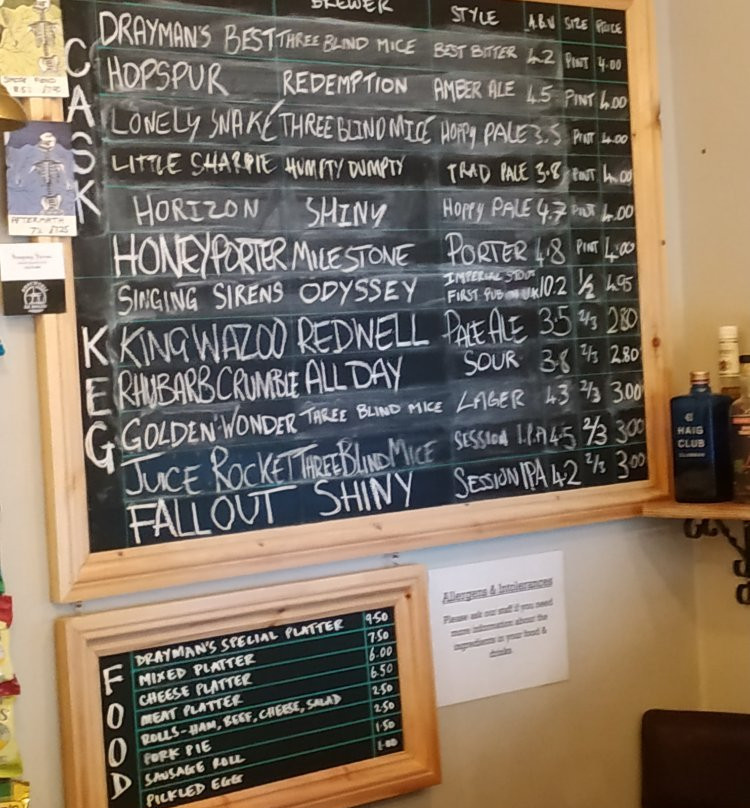 BREWER STYLE A.B.V SIZE PRICE
CASK
DRAYMAN'S BEST THREE BLIND MICE BEST BITTER 4.2 PINT 4.00
HOPSPUR REDEMPTION AMBER ALE 4.5 PINT 4.00
LONELY SNAKE THREE BLIND MICE HOPPY PALE 3.5 PINT 4.00
LITTLE SHARPIE HUMPTY DUMPTY TRAD PALE 3.8 PINT 4.00
HORIZON SHINY HOPPY PALE 4.7 PINT 4.00
HONEY PORTER MILESTONE PORTER 4.8 PINT 4.00
KEG
SINGING SIRENS ODYSSEY IMPERIAL STOUT FIRST PUB IN UK 10.2 1/2 4.95
KING WAZOO REDWELL PALE ALE 3.5 2/3 2.80
RHUBARB CRUMBLE ALL DAY SOUR 3.8 2/3 2.80
GOLDEN WONDER THREE BLIND MICE LAGER 4.3 2/3 3.00
JUICE ROCKET THREE BLIND MICE SESSION I.P.A 4.5 2/3 3.00
FALLOUT SHINY SESSION IPA 4.2 2/3 3.00
AFTERMATH
HAIG
CLUB
Allergens & Intolerances
Please ask our staff if you need
more information about the
ingredients in your food &
drinks.
FOOD
DRAYMAN'S SPECIAL PLATTER 9.50
MIXED PLATTER 7.50
CHEESE PLATTER 6.00
MEAT PLATTER 6.50
ROLLS - HAM, BEEF, CHEESE, SALAD 2.50
PORK PIE 2.50
SAUSAGE ROLL 1.50
PICKLED EGG 1.00